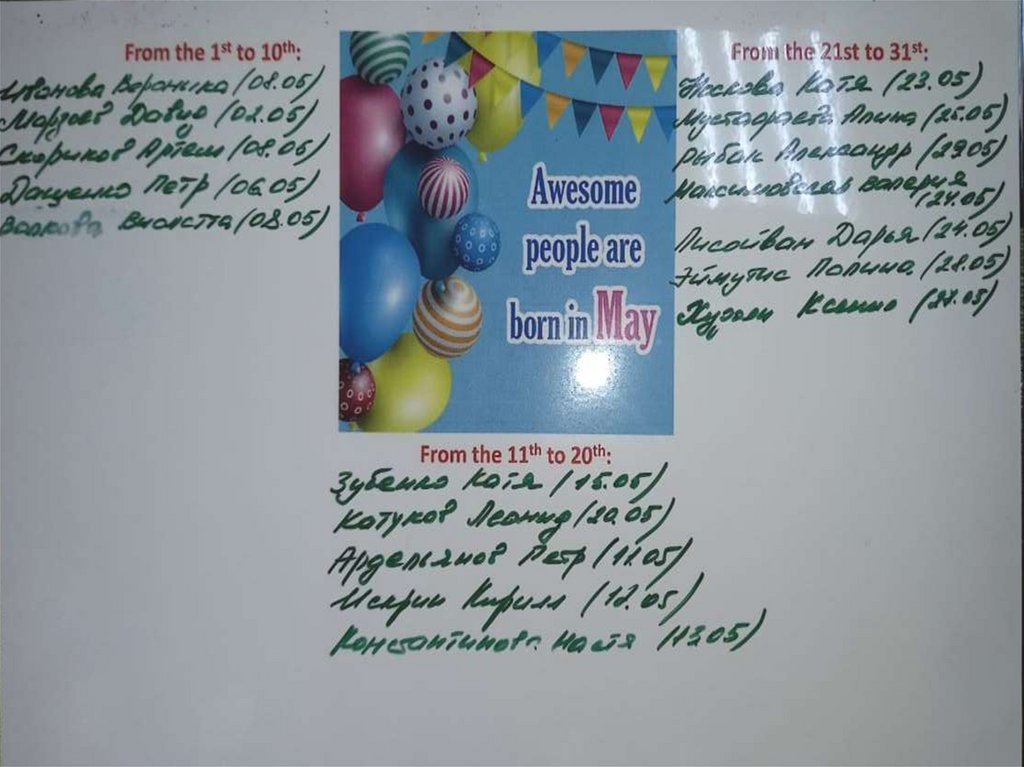 From the 1st to 10th:
Иванова Вероника (08.05)
Давид (02.05)
Скориков Артем (08.05)
Дащенко Петр (06.05)
Волкова Виолетта (08.05)
Awesome
people are
born in May
From the 21st to 31st:
Катя (23.05)
Мустафаева Алина (25.05)
Рыбак Александр (29.05)
Максимовская Валерия
(24.05)
Лисойван Дарья (24.05)
Эймутис Полина (28.05)
Ксения
From the 11th to 20th:
Зубенко Катя (15.05)
Катуков Леонид (20.05)
Ардельянов Петр (11.05)
Искрин Кирилл (12.05)
Константинова Настя (13.05)